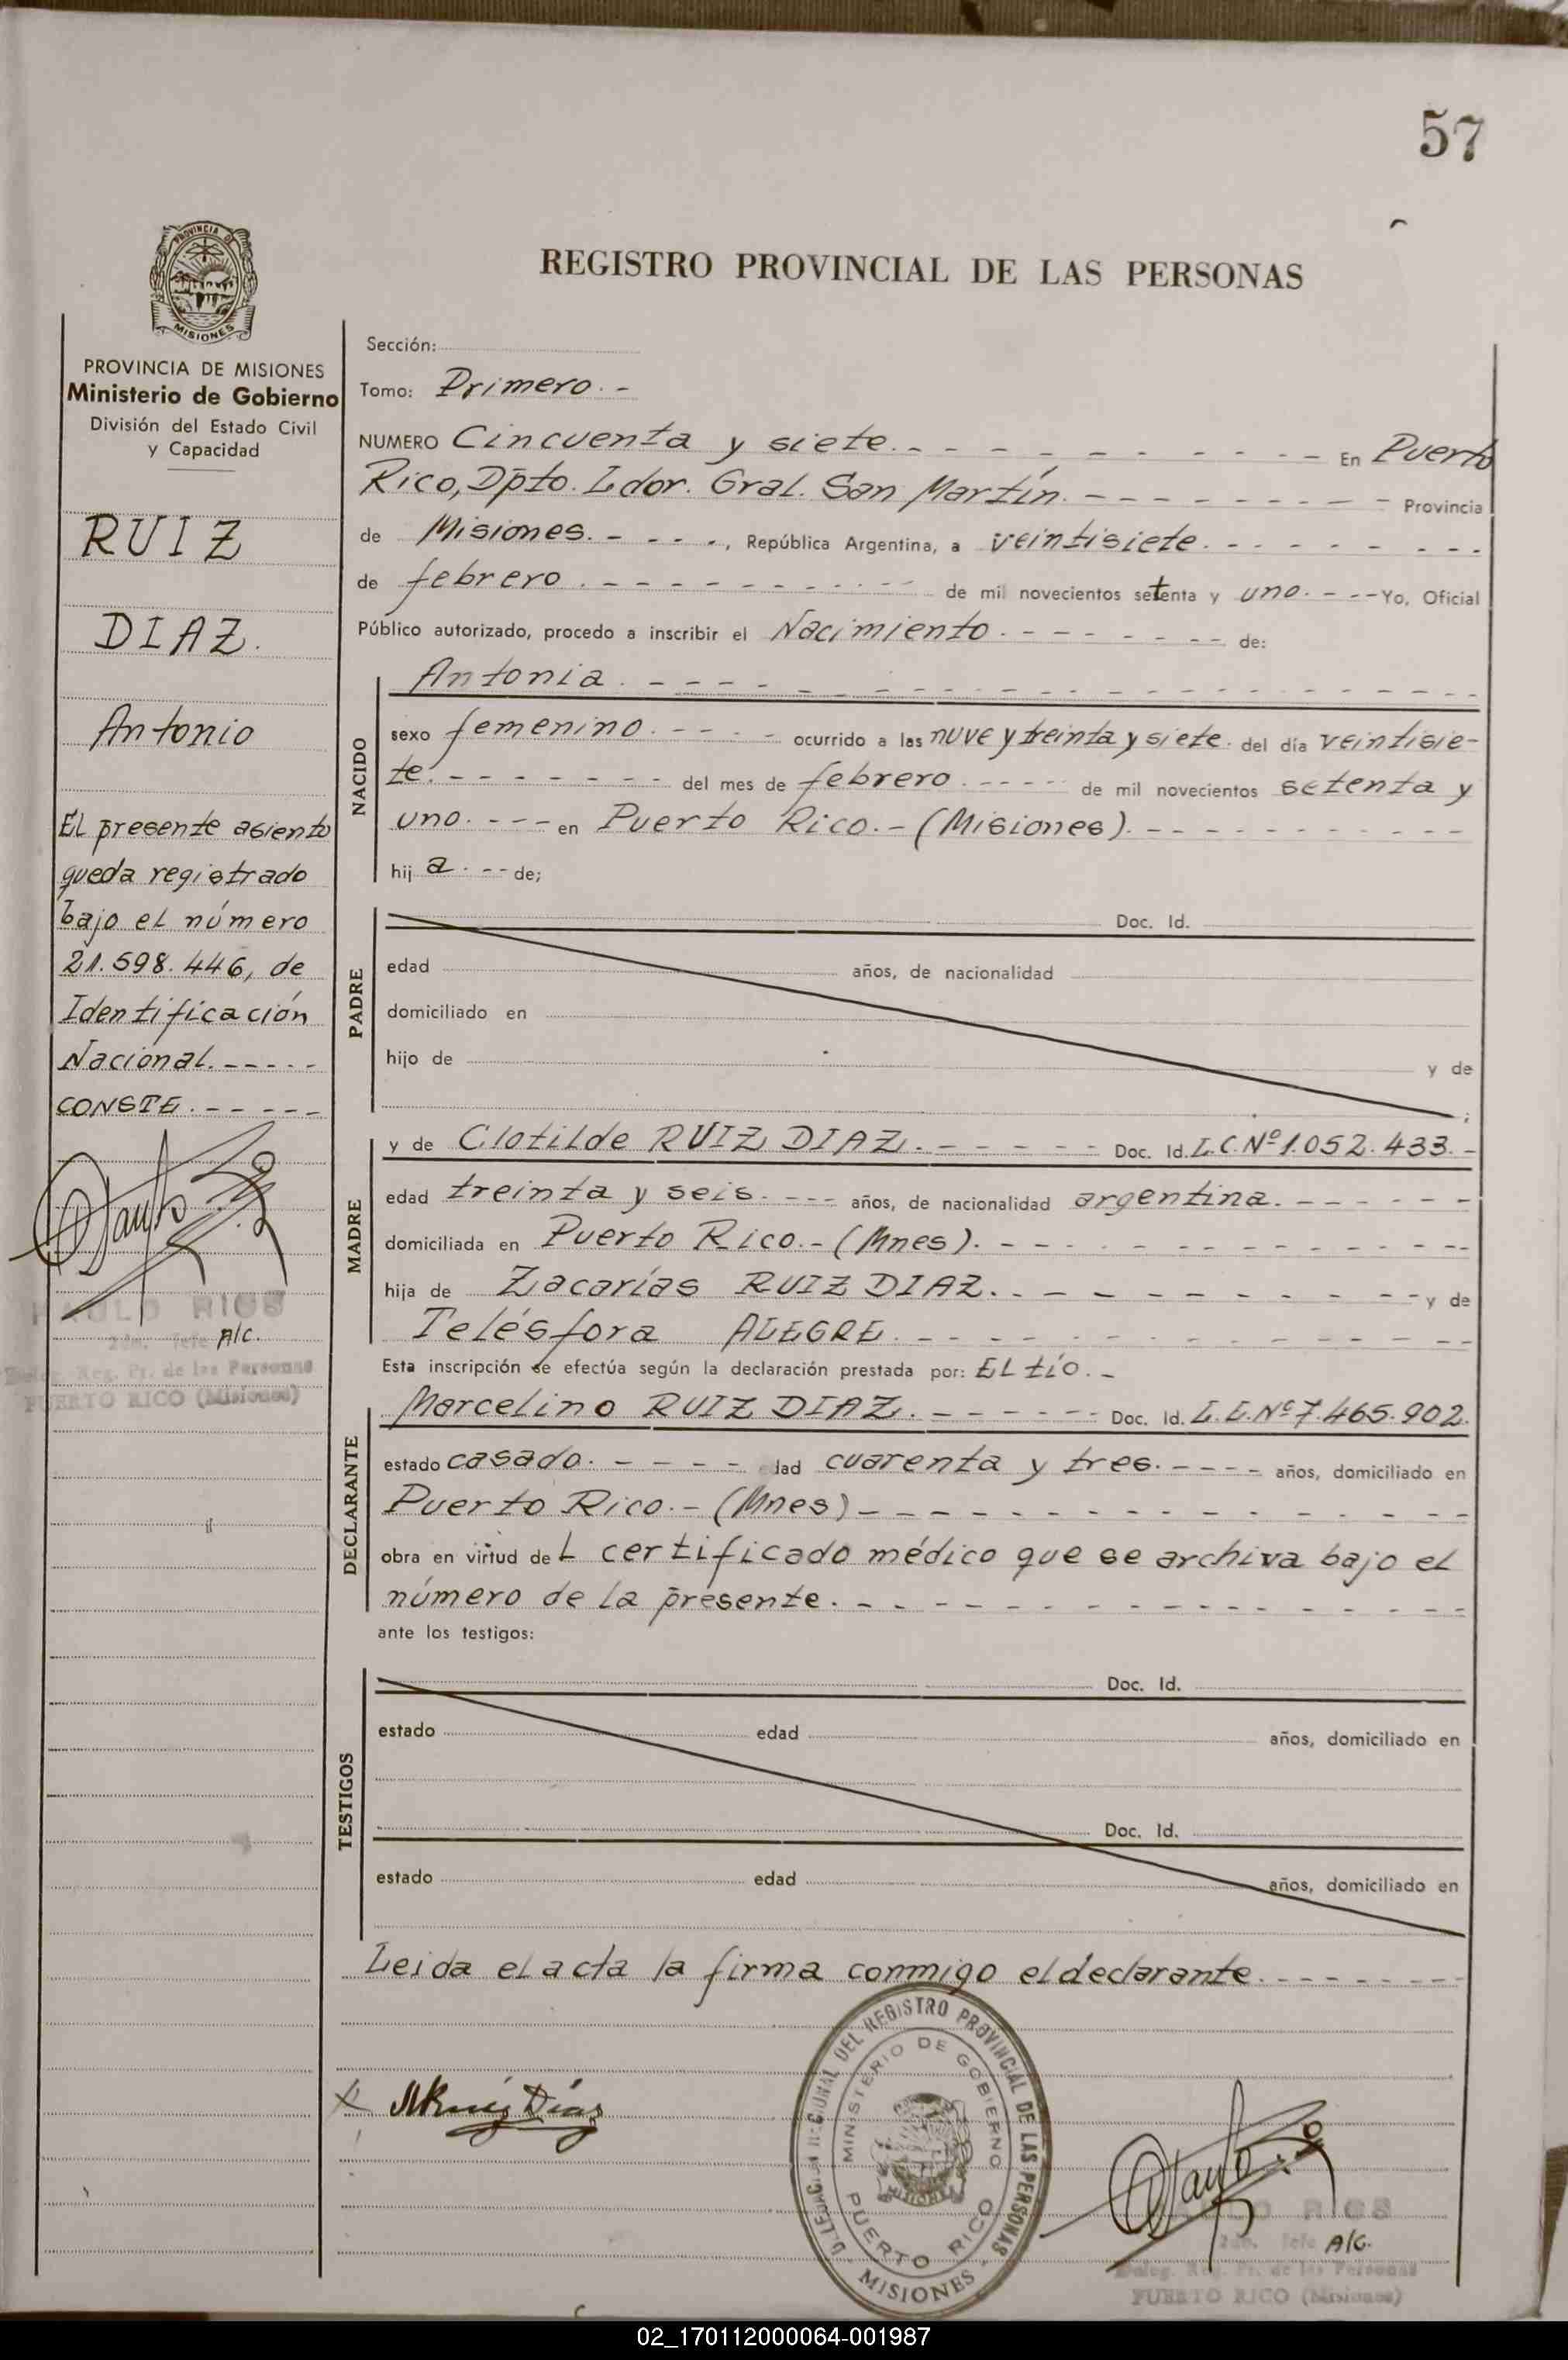 57
PROVINCIA DE
MISIONES
REGISTRO PROVINCIAL DE LAS PERSONAS
PROVINCIA DE MISIONES
Ministerio de Gobierno
División del Estado Civil
y Capacidad
RUIZ
DIAZ.
Antonio
El presente asiento
queda registrado
bajo el número
21.598.446, de
Identificación
Nacional.-----
CONSTE.-----
PAULO RIOS
2do. Jefe A/C.
Deleg. Reg. Pr. de las Personas
PUERTO RICO (Misiones)
Sección:
Tomo: Primero.-
NUMERO Cincuenta y siete.- - - - - - - - - - En Puerto
Rico, Dpto. Ldor. Gral. San Martín. - - - - - - - - - Provincia
de Misiones. - - - -, República Argentina, a veintisiete. - - - - - - - -
de febrero. - - - - - - - - - - - de mil novecientos setenta y uno. - - - Yo, Oficial
Público autorizado, procedo a inscribir el Nacimiento. - - - - - - - - de:
NACIDO
Antonia. - - - - - - - - - - - - - - - - - - - -
sexo femenino. - - - - ocurrido a las nuve y treinta y siete. del día veintisie-
te. - - - - - - - del mes de febrero. - - - - - de mil novecientos setenta y
uno. - - - en Puerto Rico.- (Misiones). - - - - - - - - - - -
hij a. - - de;
PADRE
Doc. Id.
edad años, de nacionalidad
domiciliado en
hijo de y de
;
MADRE
y de Clotilde RUIZ DIAZ. - - - - - Doc. Id. L.C.Nº1.052.433.-
edad treinta y seis. - - - años, de nacionalidad argentina. - - - - - -
domiciliada en Puerto Rico.- (Mnes). - - - - - - - - - - - - -
hija de Zacarías RUIZ DIAZ. - - - - - - - - - - y de
Telésfora ALEGRE. - - - - - - - - - - - - - -
Esta inscripción se efectúa según la declaración prestada por: EL tío. -
DECLARANTE
Marcelino RUIZ DIAZ. - - - - - - Doc. Id. L.E.Nº7.465.902.
estado casado. - - - - - edad cuarenta y tres. - - - - años, domiciliado en
Puerto Rico.- (Mnes) - - - - - - - - - - - - - - -
obra en virtud de L certificado médico que se archiva bajo el
número de la presente. - - - - - - - - - - - - - - -
ante los testigos:
TESTIGOS
Doc. Id.
estado edad años, domiciliado en
Doc. Id.
estado edad años, domiciliado en
Leida el acta la firma conmigo el declarante. - - - - - - -
x MRuiz Díaz
DELEGACION REGIONAL DEL REGISTRO PROVINCIAL DE LAS PERSONAS
MINISTERIO DE GOBIERNO
PUERTO RICO
- MISIONES -
PAULO RIOS
2do. Jefe A/C.
Deleg. Reg. Pr. de las Personas
PUERTO RICO (Misiones)
02_170112000064-001987